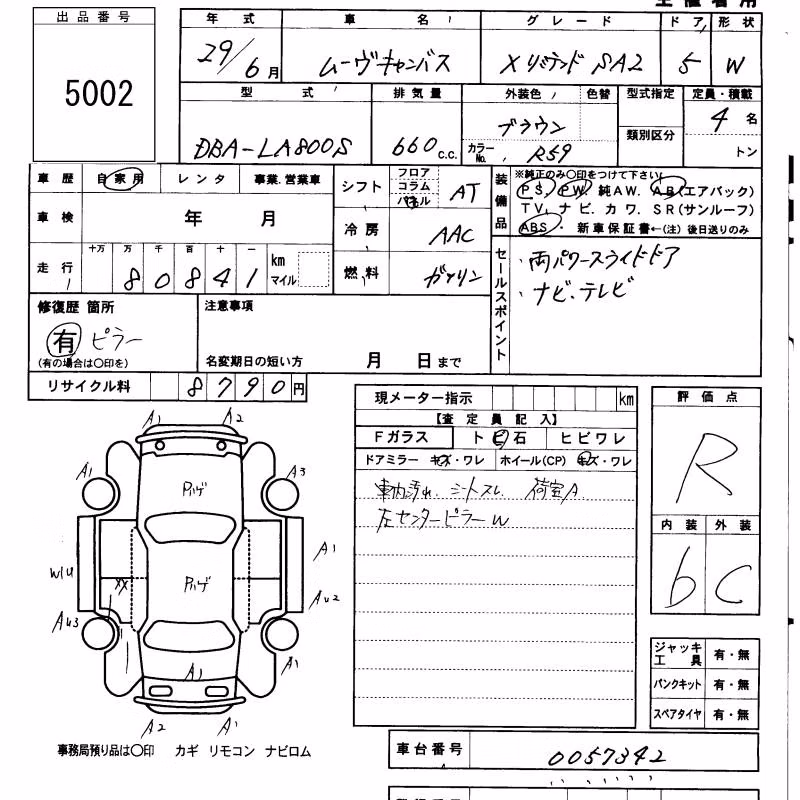 出品番号
5002
年式 車名 グレード ドア 形状
29/6月 ムーヴキャンバス Xリミテッド SA2 5 W
型式 排気量 外装色 色替 型式指定 定員・積載
DBA-LA800S 660 c.c. ブラウン 類別区分 4名
カラーNo. R59 トン
車歴 自家用 レンタ 事業.営業車 シフト フロア コラム パネル AT
装備品 ※純正のみ○印をつけて下さい
PS. PW 純AW. AB(エアバック)
TV. ナビ. カワ. SR(サンルーフ)
ABS ・ 新車保証書←(注)後日送りのみ
車検 年 月 冷房 AAC
走行 十万 万 千 百 十 一 km マイル
80841
燃料 ガソリン
セールスポイント
・両パワースライドドア
・ナビ.テレビ
修復歴 箇所
有 ピラー
(有の場合は○印を)
注意事項
名変期日の短い方 月 日まで
リサイクル料 8790円
現メーター指示 km
【査定員記入】
Fガラス トビ石 ヒビワレ
ドアミラー キズ・ワレ ホイール(CP) キズ・ワレ
車内汚れ. シートスレ. 荷室A
左センターピラーW
評価点
R
内装 外装
b C
A1 A2
A1 A3
ハゲ
A1
W1U XX ハゲ
AU2
AU3
A1 A1
A2 A1
ジャッキ工具 有・無
パンクキット 有・無
スペアタイヤ 有・無
事務局預り品は○印 カギ リモコン ナビロム
車台番号 0057342